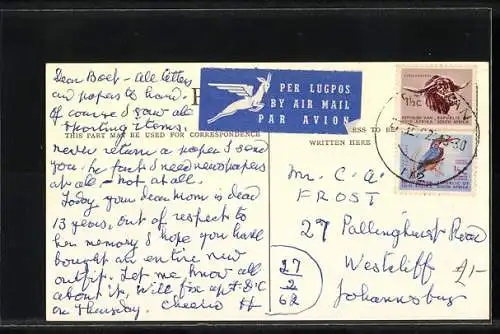 Dear Boet - All letters
and papers to hand.
Of course I saw all
sporting items.
THIS PART MAY BE USED FOR CORRESPONDENCE
never return a paper I send
you. In fact I need newspapers
at all - not at all.
Today, your dear Mom is dead
13 years. Out of respect to
her memory I hope you have
bought an entire new
outfit. Let me know all
about it. Will fix up
on Thursday. Cheerio
PER LUGPOS
BY AIR MAIL
PAR AVION
ESS TO BE
WRITTEN HERE
1½c
REPUBLIEK VAN REPUBLIC OF
SUID-AFRIKA SOUTH AFRICA
REPUBLIC OF
Mr. C. A.
FROST
27 Pallinghurst Road
Westcliff
Johannesburg
27
2
62